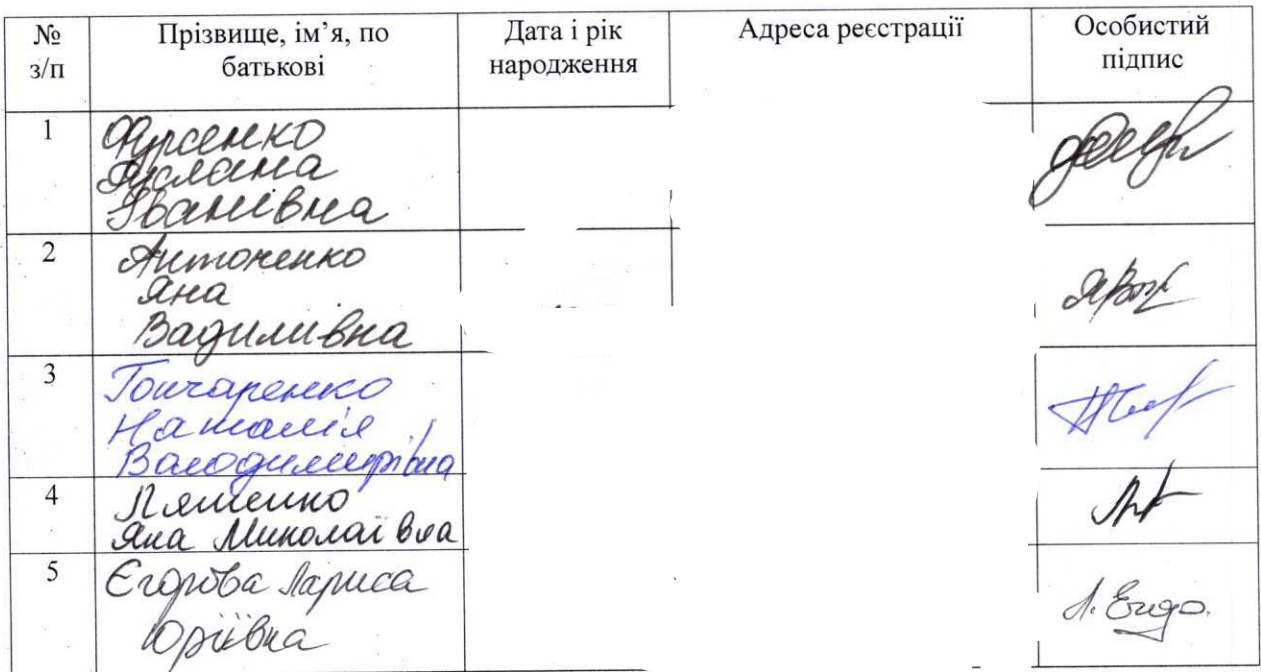 № з/п
Прізвище, ім’я, по батькові
Дата і рік народження
Адреса реєстрації
Особистий підпис
1
Фурсенко
Руслана
Іванівна
2
Антоненко
Яна
Вадимівна
3
Гончаренко
Наталія
Володимирівна
4
Ляшенко
Яна Миколаївна
5
Єгорова Лариса
Юріївна